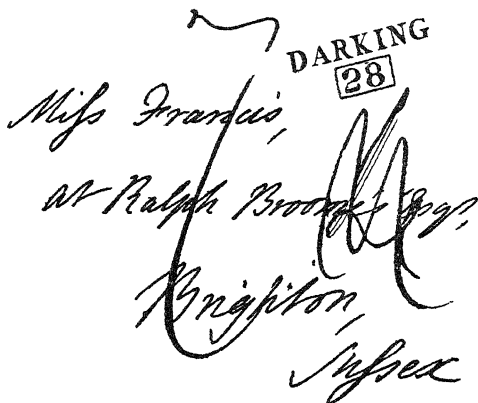 DARKING
28
Miſs Francis,
at Ralph Broome's Esqr.
Brighton,
Suſsex